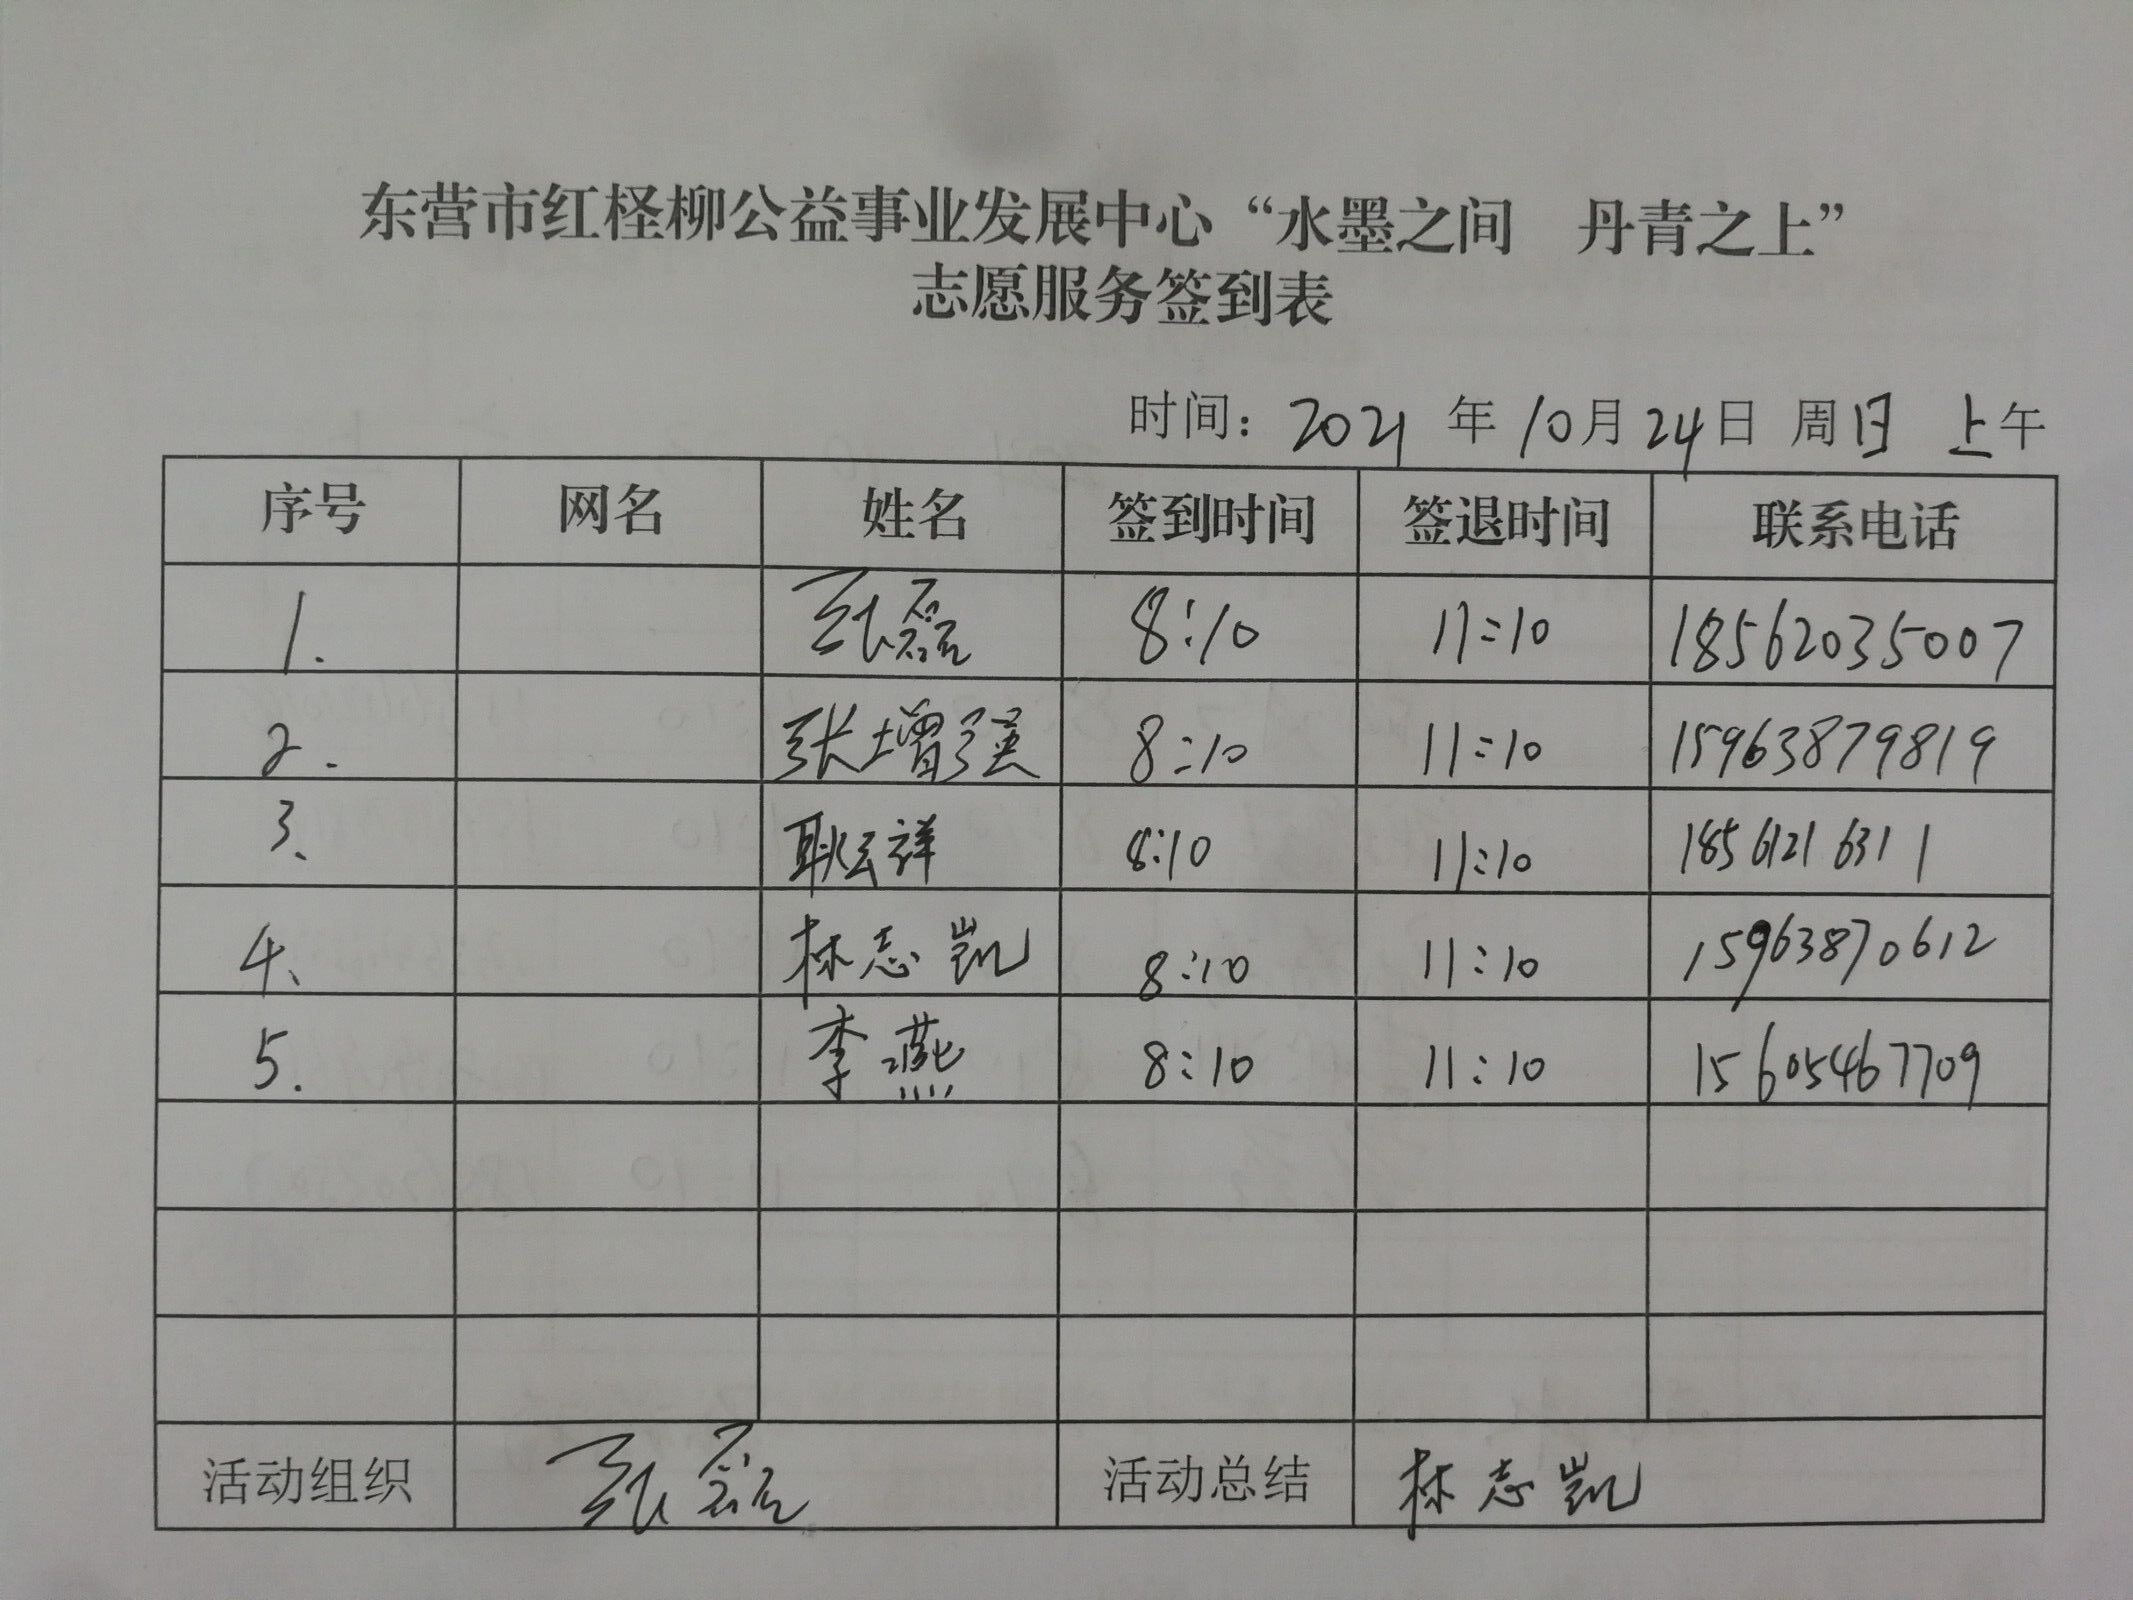 东营市红柽柳公益事业发展中心“水墨之间　丹青之上”
志愿服务签到表
时间：2021 年 10月 24日 周日 上午
序号 网名 姓名 签到时间 签退时间 联系电话
1. 张磊 8:10 11:10 18562035007
2. 张增强 8:10 11:10 15963879819
3、 耿云祥 8:10 11:10 18561216311
4、 林志凯 8:10 11:10 15963870612
5. 李燕 8:10 11:10 15605467709
活动组织 张磊 活动总结 林志凯